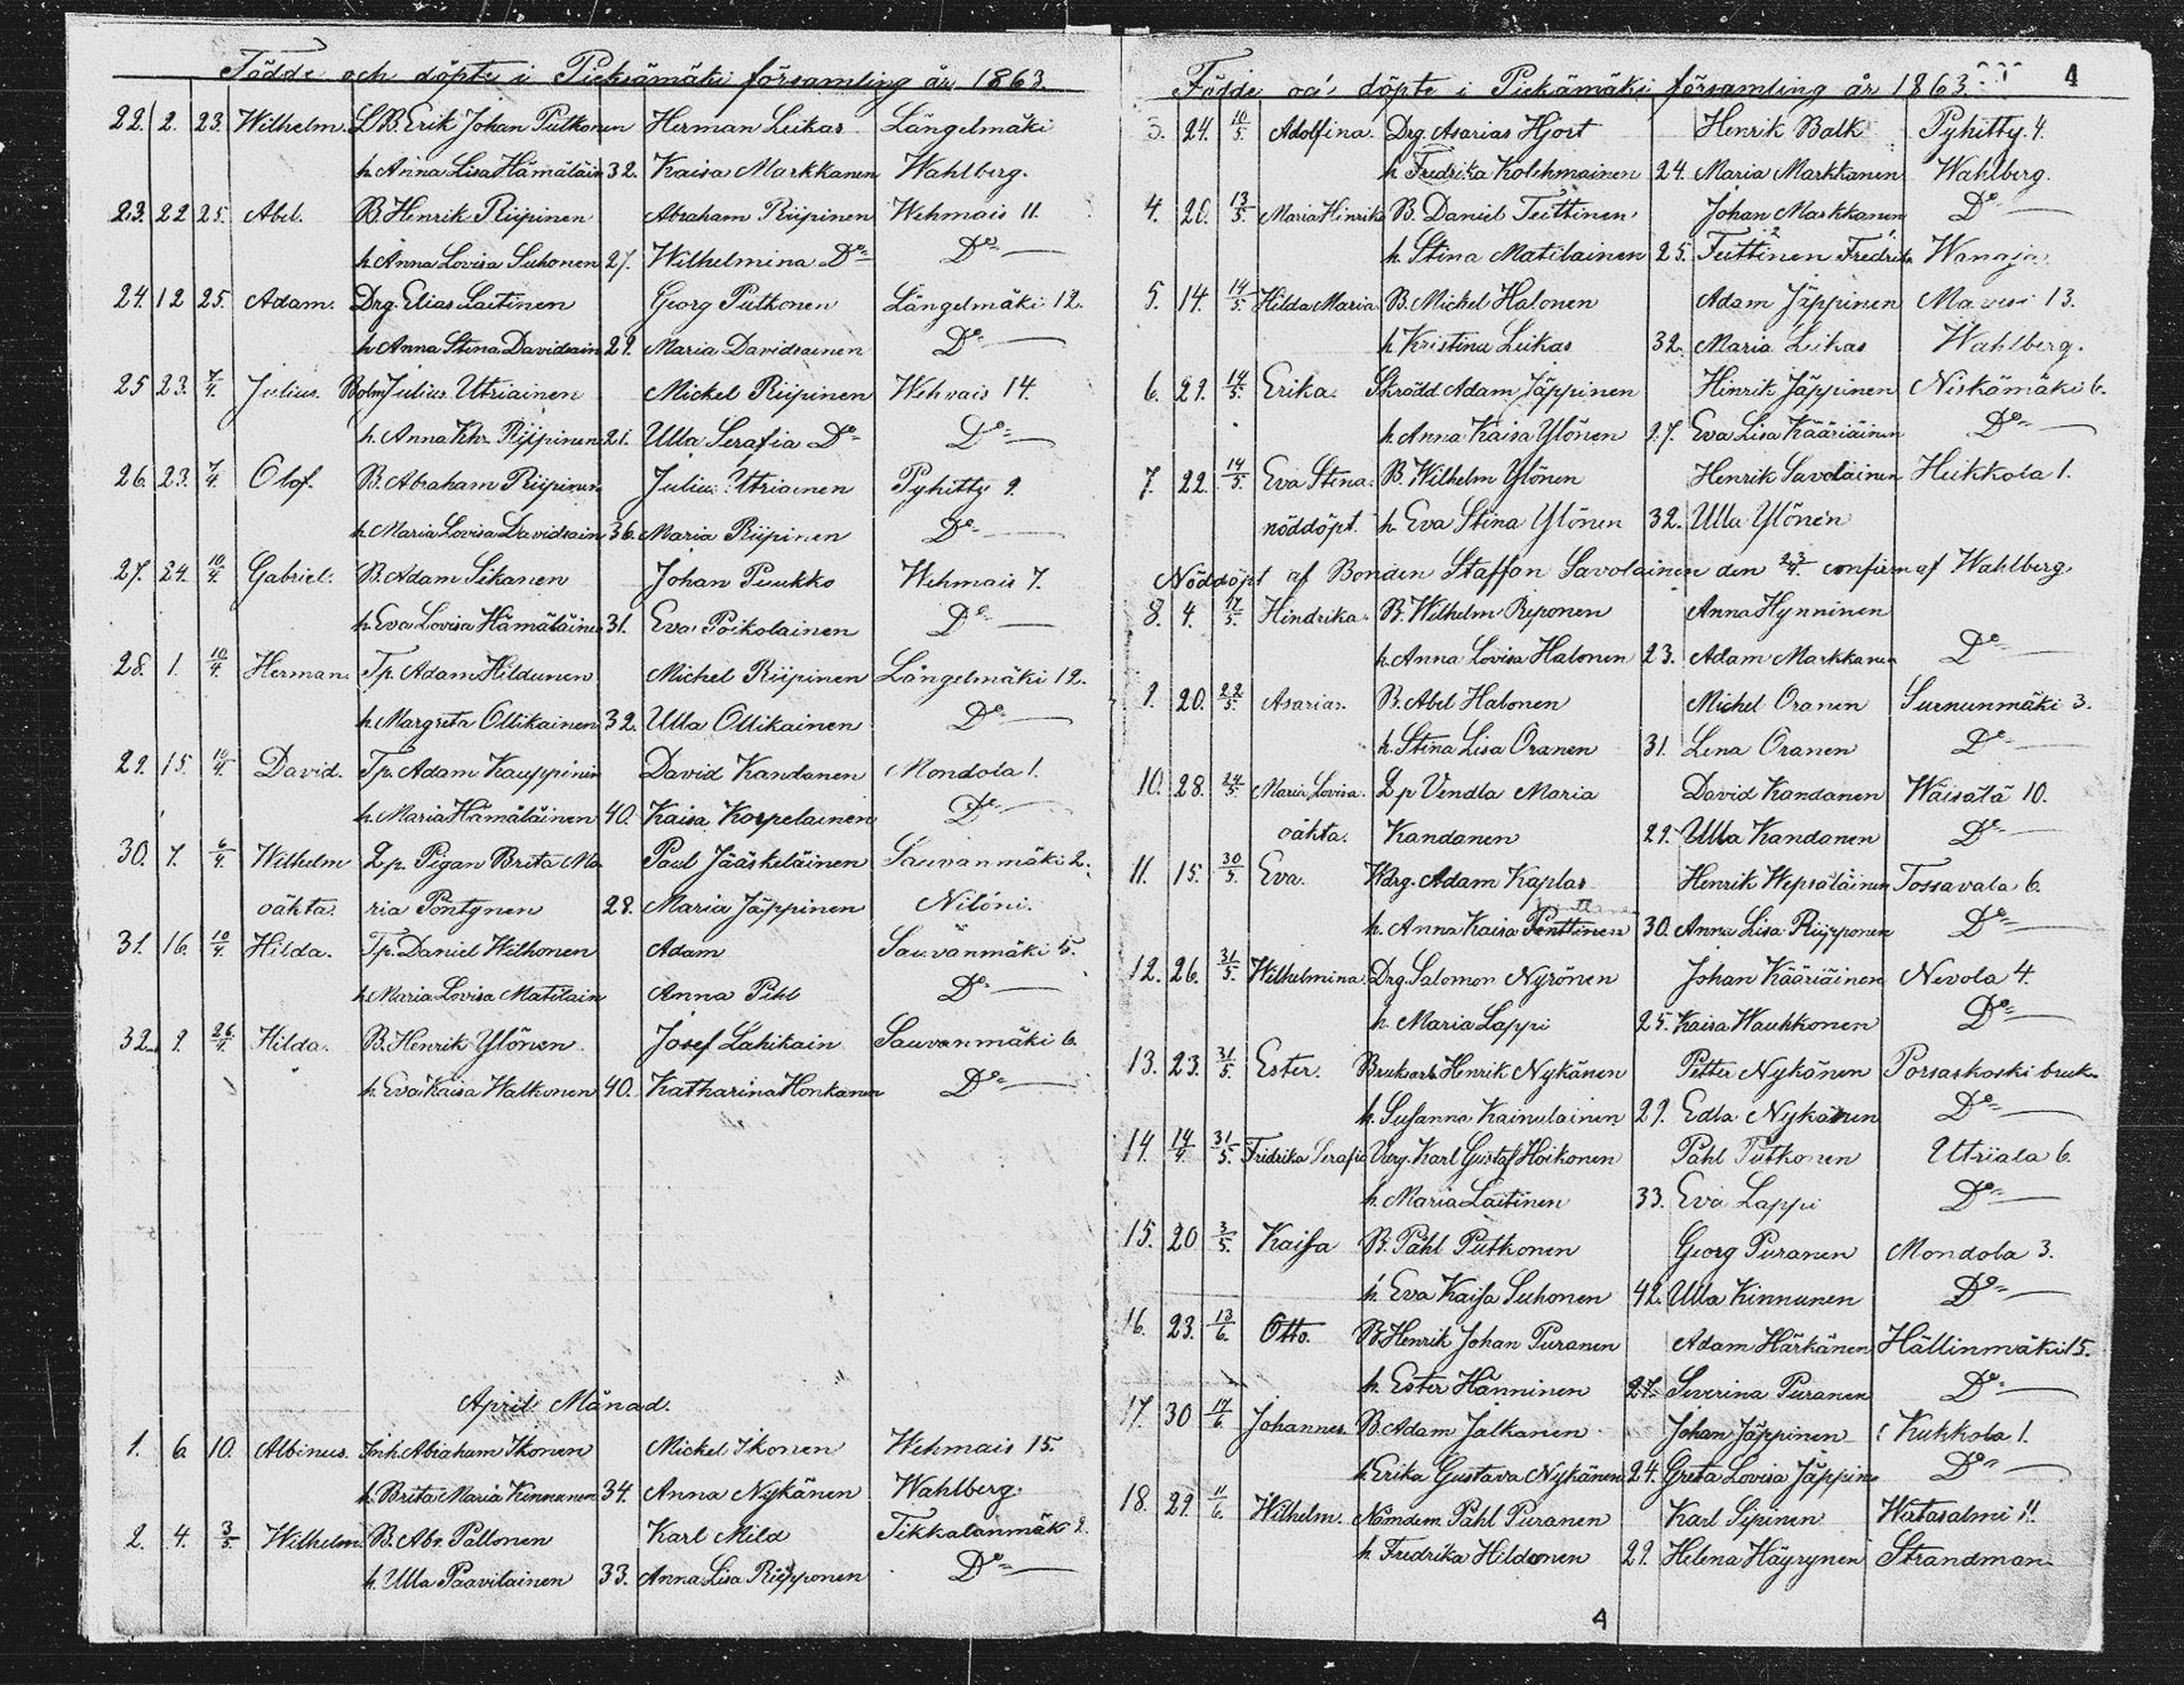 Födde och döpte i Pieksämäki församling år 1863.
22. 2. 23. Wilhelm. LB. Erik Johan Putkonen Herman Leikas Längelmäki
h. Anna Lisa Hämäläin 32. Kaisa Markkanen Wahlberg.
23. 22 25. Abel. B. Henrik Riipinen Abraham Riipinen Wehmais 11.
h. Anna Lovisa Suhonen 27. Wilhelmina Do Do
24. 12 25. Adam. Drg. Elias Laitinen Georg Putkonen Längelmäki 12.
h. Anna Stina Davidsain 29. Maria Davidsainen Do
25 23. 7/4. Julius. Bolm Julius Utriainen Mickel Riipinen Wehvais 14.
h. Anna Khr. Riipinen 21. Ulla Serafia Do Do
26. 23. 7/4. Olof. B. Abraham Riipinen Julius Utriainen Pyhitty 9.
h. Maria Lovisa Davidsain 36. Maria Riipinen Do
27. 24. 10/4. Gabriel. B. Adam Sikanen Johan Puukko Wehmais 7.
h. Eva Lovisa Hämäläinen 31. Eva Poikolainen Do
28. 1. 10/4. Herman. Tp. Adam Hildunen Michel Riipinen Längelmäki 12.
h. Margreta Ollikainen 32. Ulla Ollikainen Do
29. 15. 10/4. David. Tp. Adam Kauppinin David Kandanen Mondola 1.
h. Maria Hämäläinen 40. Kaisa Korpelainen Do
30. 7. 6/4. Wilhelm Qp. Pigan Brita Ma Paul Jääskeläinen Sauvanmäki 2.
oäkta. ria Pöntynen 28. Maria Jäppinen Niloni.
31. 16. 10/4. Hilda. Tp. Daniel Wilhonen Adam Sauvanmäki 5.
h. Maria Lovisa Matilain Anna Pihl Do
32. 9. 26/4. Hilda. B. Henrik Ylönen Josef Lahikain Sauvanmäki 6.
h. Eva Kaisa Walkonen 40. Katharina Honkanen Do
April Månad.
1. 6. 10. Albinus. Inh. Abraham Ikonen Mickel Ikonen Wehmais 15.
h. Brita Maria Kinnunen 34. Anna Nykänen Wahlberg.
2. 4. 3/5 Wilhelm. B. Abr. Pallonen Karl Mild Tikkalanmäki 2.
h. Ulla Paavilainen 33. Anna Lisa Riipponen Do
4
Födde och döpte i Piekämäki församling år 1863.
3. 24. 10/5 Adolfina. Drg. Asarias Hjort Henrik Balk Pyhitty. 4.
h. Fredrika Kolehmainen 24. Maria Markkanen Wahlberg.
4. 26. 13/5. Maria Hinrika B. Daniel Teittinen Johan Markkanen Do
h. Stina Matilainen 25. Teittinen Fredrika Wanaja.
5. 14. 14/5. Hilda Maria B. Michel Halonen Adam Jäppinen Mavesi 13.
h. Kristina Leikas 32. Maria Leikas Wahlberg.
6. 29. 14/5. Erika. Skrädd. Adam Jäppinen Hinrik Jäppinen Niskämäki 6.
h. Anna Kaisa Ylönen 27. Eva Lisa Kääriäinen Do
7. 22. 14/5. Eva Stina. B. Wilhelm Ylönen Henrik Savolainen Heikkola 1.
nöddöpt. h. Eva Stina Ylönen 32. Ulla Ylönen
Nöddöpt af Bonden Staffon Savolainen den 23/4. confirm af Wahlberg
8. 4. 17/5. Hindrika. B. Wilhelm Reponen Anna Hynninen
h. Anna Lovisa Halonen 23. Adam Markkanen Do
9. 20. 22/5. Asarias. B. Abel Halonen Michel Oranen Surnunmäki 3.
h. Stina Lisa Oranen 31. Lena Oranen Do
10. 28. 24/5. Maria Lovisa. Qp Vendla Maria David Kandanen Wäisälä 10.
oäkta. Kandanen 29. Ulla Kandanen Do
11. 15. 30/5. Eva. Wdrg. Adam Kaplas Henrik Wepsäläinen Tossavala 6.
h. Anna Kaisa Penttinen 30. Anna Lisa Riipponen Do
12. 26. 31/5. Wilhelmina. Drg. Salomon Nyrönen Johan Kääriäinen Nevola 4.
h. Maria Lappi 25. Kaisa Wauhkonen Do
13. 23. 31/5. Ester. Bruksarb. Henrik Nykänen Petter Nykänen Porsaskoski bruk.
h. Susanna Kainulainen 29. Edla Nykänen Do
14. 14/4. 31/5. Fridrika Serafia Karl Gustaf Hoikonen Påhl Putkonen Utriala 6.
h. Maria Laitinen 33. Eva Lappi Do
15. 20 3/5. Kaisa B. Påhl Putkonen Georg Puranen Mondola 3.
h. Eva Kaisa Suhonen 42. Ulla Kinnunen Do
16. 23. 13/6. Otto. B. Henrik Johan Puranen Adam Härkänen Hällinmäki 15.
h. Ester Hänninen 27. Severina Puranen Do
17. 30 17/6 Johannes. B. Adam Jalkanen Johan Jäppinen Kukkola 1.
h. Erika Gustava Nykänen 24. Greta Lovisa Jäppin Do
18. 29. 11/6. Wilhelm. Nämdem. Påhl Puranen Karl Sipinen Wirtasalmi 11.
h. Fredrika Hildonen 29. Helena Häyrynen Strandman
4